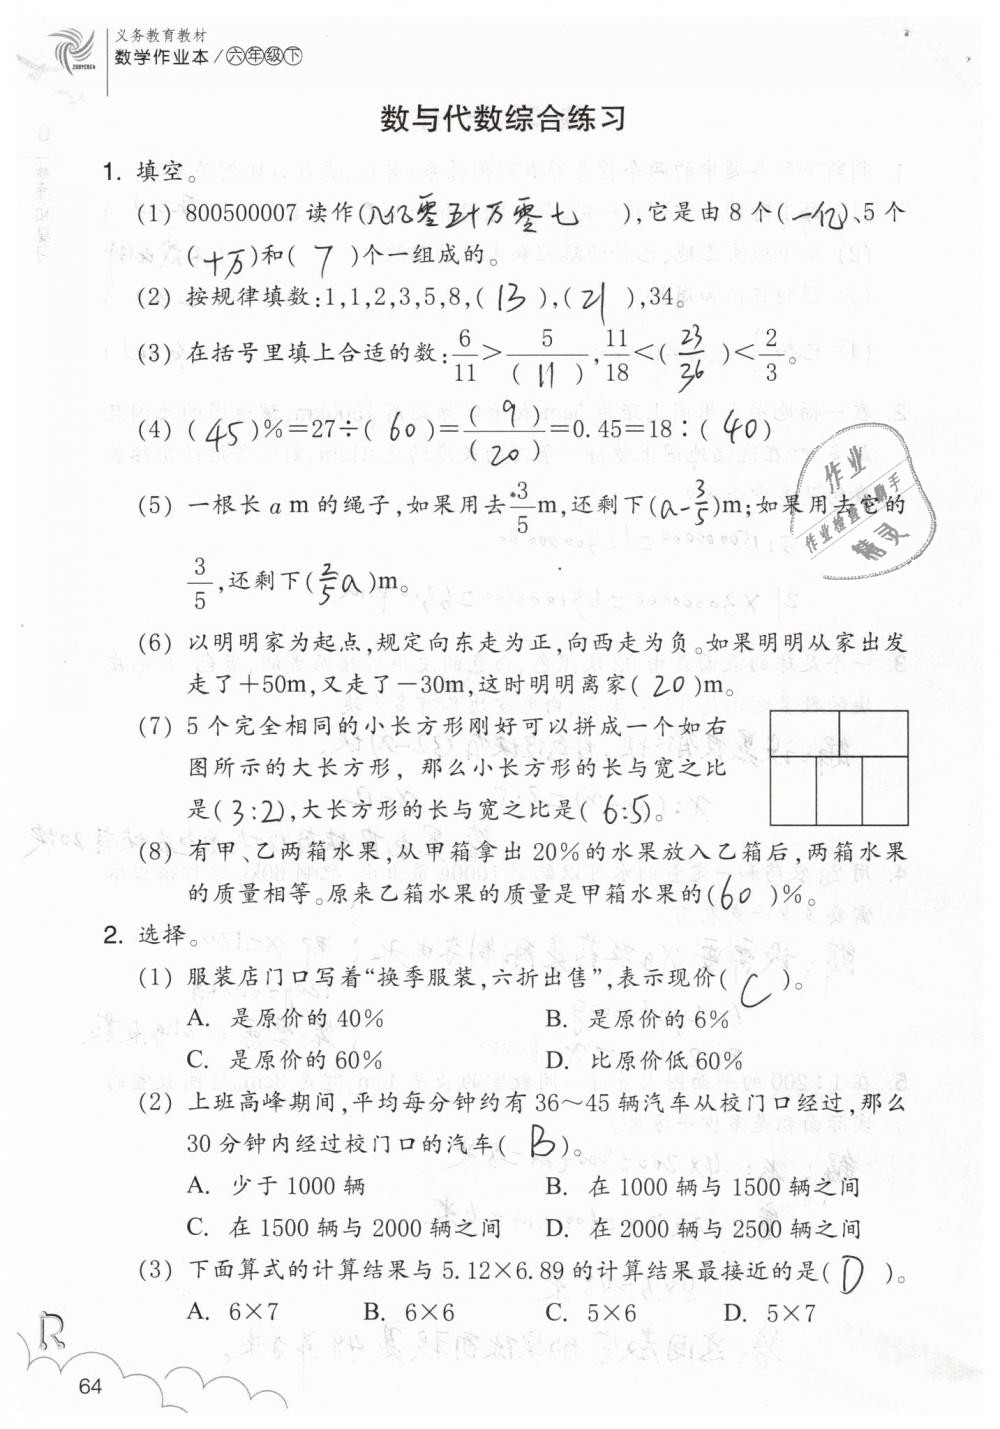 义务教育教材
数学作业本/六年级下
ZUOYEBEN
数与代数综合练习
1. 填空。
(1) 800500007读作(八亿零五十万零七),它是由8个(一亿)、5个
(十万)和(7)个一组成的。
(2) 按规律填数:1,1,2,3,5,8,(13),(21),34。
(3) 在括号里填上合适的数:6/11>5/(11),11/18<(23/36)<2/3。
(4) (45)%=27÷(60)=(9)/(20)=0.45=18:(40)
(5) 一根长a m的绳子,如果用去3/5m,还剩下(a-3/5)m;如果用去它的
3/5,还剩下(2/5a)m。
(6) 以明明家为起点,规定向东走为正,向西走为负。如果明明从家出发
走了+50m,又走了-30m,这时明明离家(20)m。
(7) 5个完全相同的小长方形刚好可以拼成一个如右
图所示的大长方形,那么小长方形的长与宽之比
是(3:2),大长方形的长与宽之比是(6:5)。
(8) 有甲、乙两箱水果,从甲箱拿出20%的水果放入乙箱后,两箱水果
的质量相等。原来乙箱水果的质量是甲箱水果的(60)%。
2. 选择。
(1) 服装店门口写着“换季服装,六折出售”,表示现价(C)。
A. 是原价的40% B. 是原价的6%
C. 是原价的60% D. 比原价低60%
(2) 上班高峰期间,平均每分钟约有36~45辆汽车从校门口经过,那么
30分钟内经过校门口的汽车(B)。
A. 少于1000辆 B. 在1000辆与1500辆之间
C. 在1500辆与2000辆之间 D. 在2000辆与2500辆之间
(3) 下面算式的计算结果与5.12×6.89的计算结果最接近的是(D)。
A. 6×7 B. 6×6 C. 5×6 D. 5×7
R
64
作业
作业检查小助手
精灵